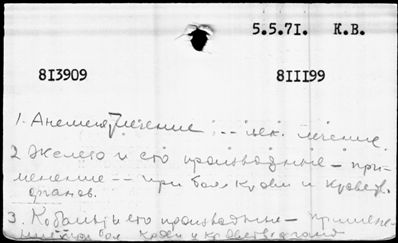 5.5.71. К.В.
813909 8III99
1. Анемия, лечение; -- лек. лечение.
2 Железо и его производные - при-
менение -- при бол. крови и кроветв.
органов.
3. Кобальт и его производные - примене-
ние при бол. крови и кроветв. органов